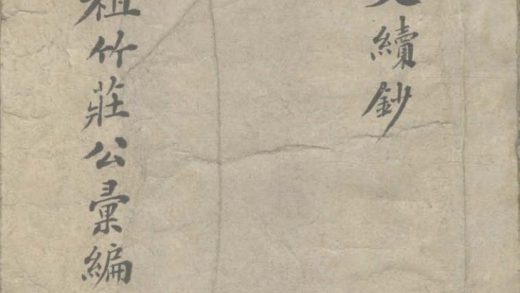 續鈔
祖竹莊公彙編